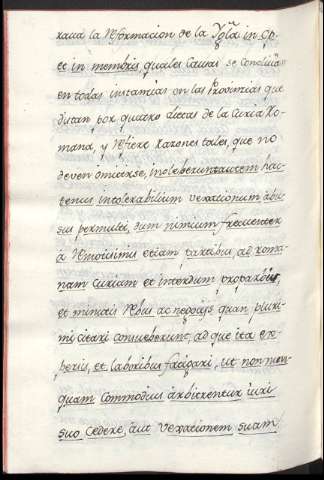 xaua la reformacion de la Ygła in Cp.
et in membris, quales causas se concluian
en todas instancias en las Provincias que
distan por quatro dietas de la Curia Ro-
mana, y refiere razones tales, que no
deven omitirse, inoleberunt autem hac-
tenus intolerabilium vexationum abu-
sus permulti, dum nimium frequenter
á remotisimis etiam partibus, ad roma-
nam curiam et interdum pro parvis,
et minutis rebus ac negotijs quam pluri-
mi citari consueberunt, ad que ita ex-
pensis, et laboribus fatigari, ut non nun-
quam commodius arbitrentur iuri
suo cedere, aut vexationem suam